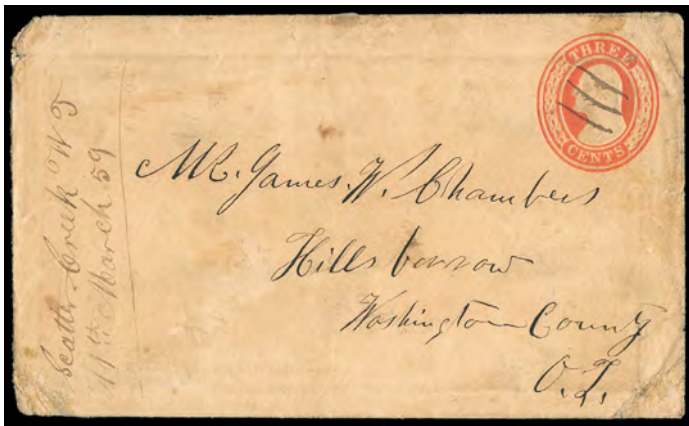 THREE
CENTS
Scatter Creek W T
11th March 59
Mr. James. W. Chambers
Hillsborrow
Washington County
O.T.